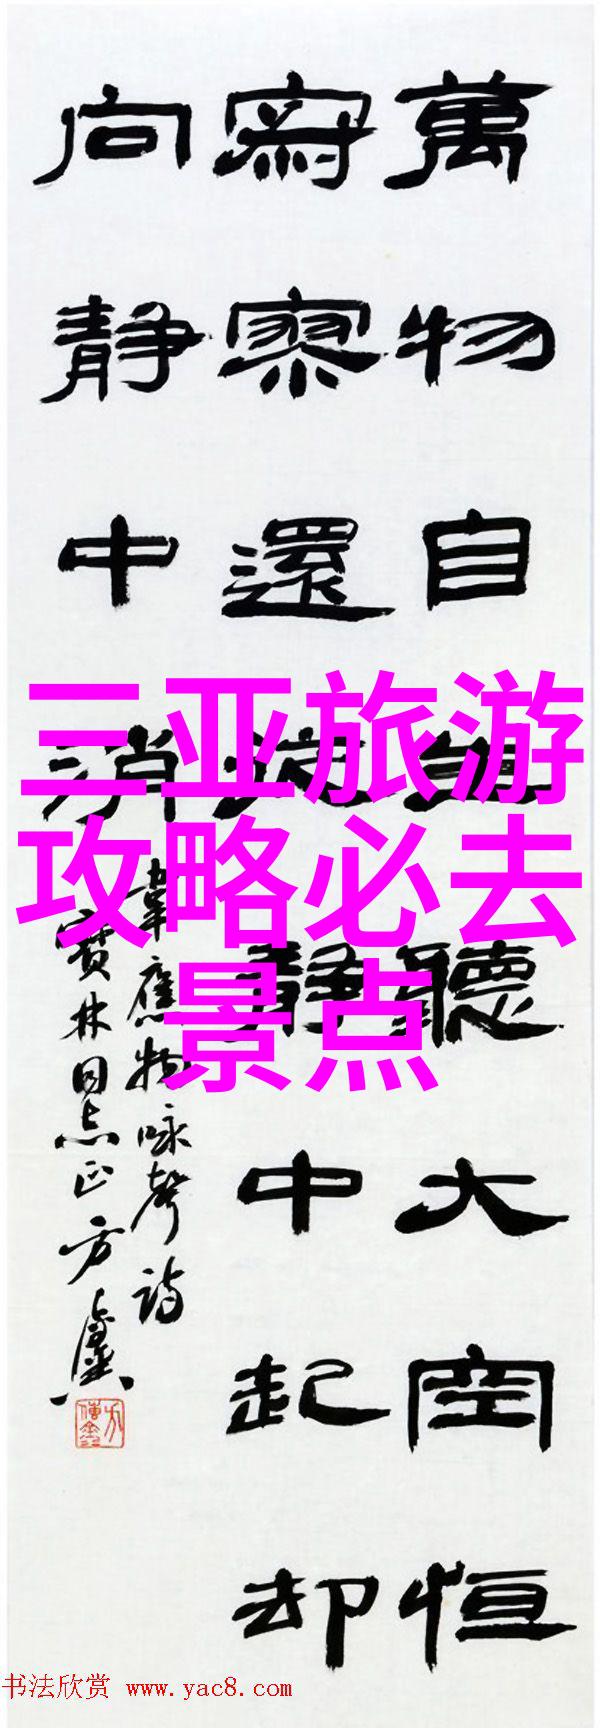 萬物自生聽大空恒
寂寥還從静中起却
向静中消
韋應物咏聲詩
寶林同志正方
三亚旅游
攻略必去
景点
书法欣赏 www.yac8.com